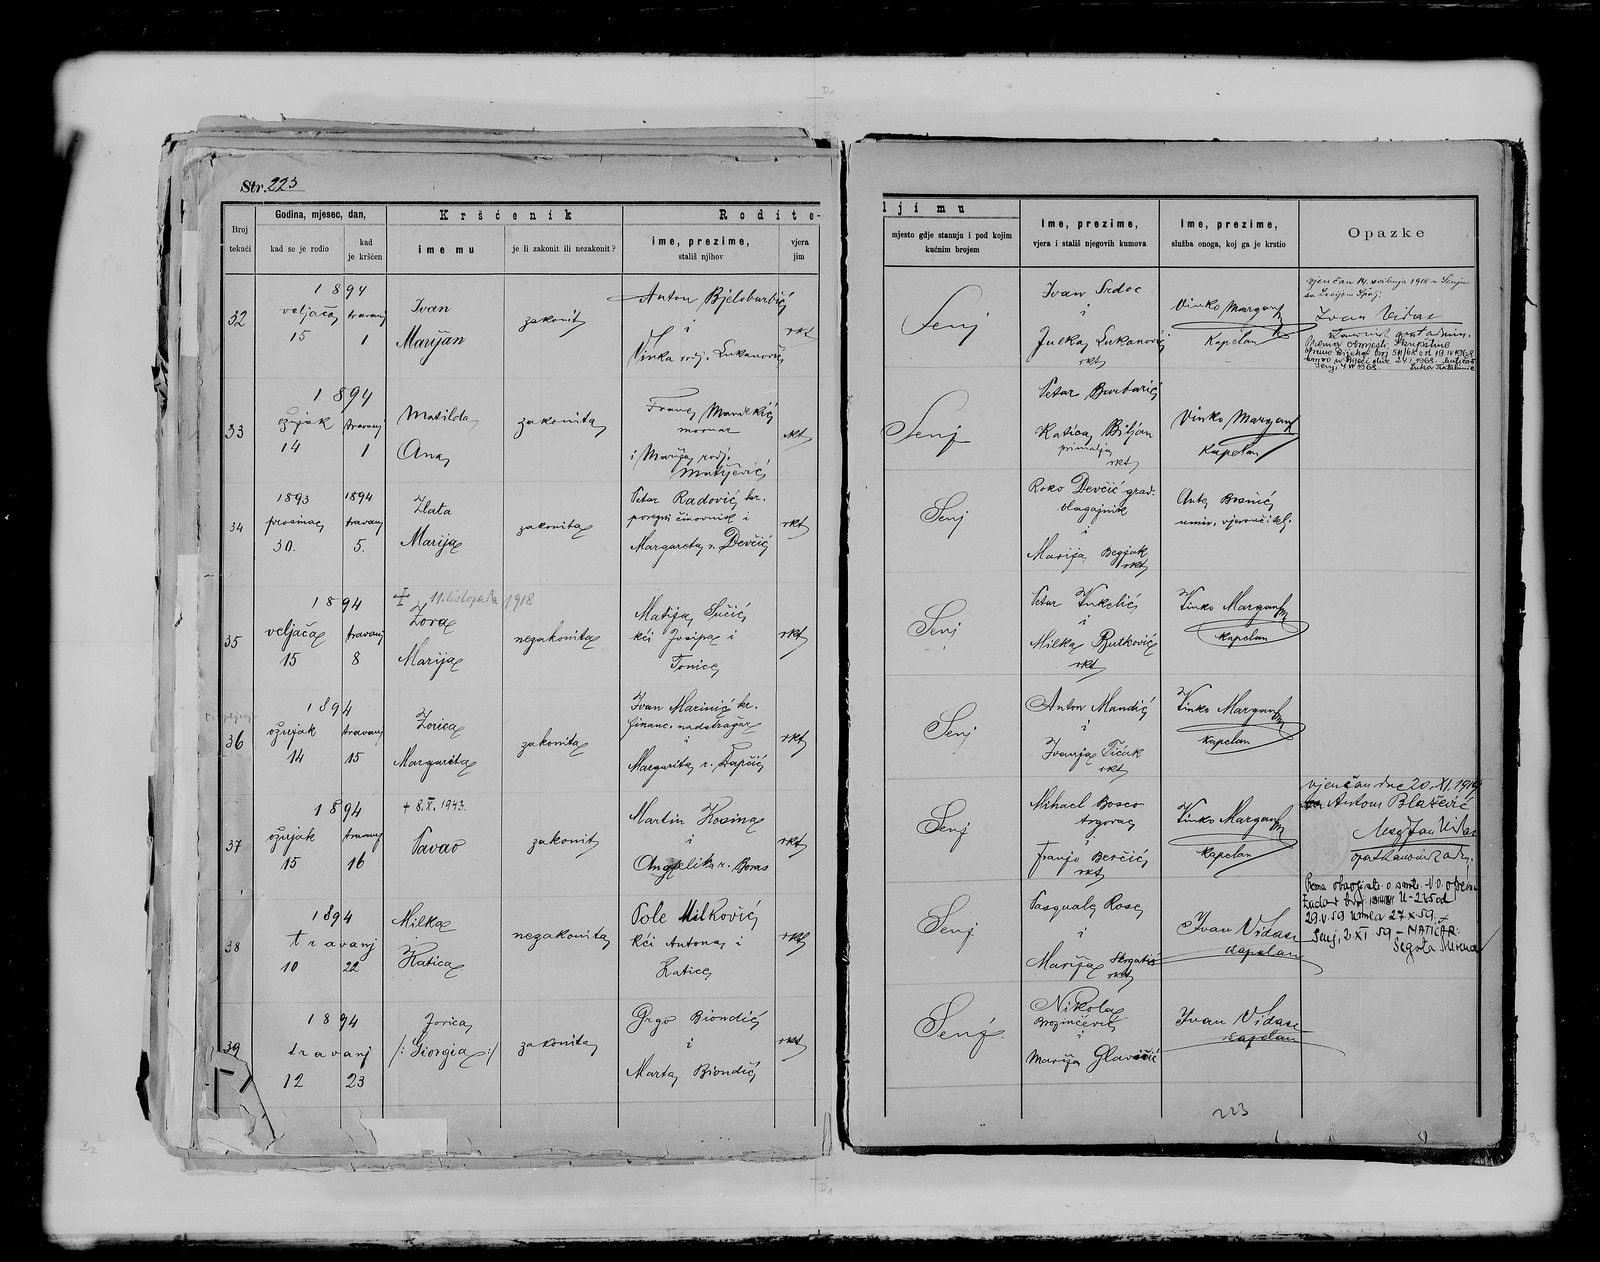 Str. 223
Broj tekući
Godina, mjesec, dan,
kad se je rodio
kad je kršćen
Kršćenik
ime mu
je li zakonit ili nezakonit?
Rodite-
ime, prezime,
stališ njihov
vjera jim
lji mu
mjesto gdje stanuju i pod kojim kućnim brojem
Ime, prezime,
vjera i stališ njegovih kumova
Ime, prezime,
služba onoga, koj ga je krstio
Opazke
32
1894
veljača travanj
15 1
Ivan
Marijan
zakonit
Anton
i
Vinka rodj. Lukanović
rkt
Senj
Ivan Srdoc
i
Julka Lukanović
rkt
Vinko Margan
Kapelan
Ivan Vidas
33
1894
ožujak travanj
14 1
Matilda
Ana
zakonita
Franj Mandekić
mornar
i Marija rodj.
Matijević
rkt
Senj
Petar Barbarić
Katica Biljan
primalja
rkt
Vinko Margan
Kapelan
34
1893 1894
prosinac travanj
30. 5.
Zlata
Marija
zakonita
Petar Radović kr.
porezni činovnik i
Margareta r. Devčić
rkt
Senj
Roko Devčić grad.
blagajnik
i
Marija
rkt
Ante
umir. vjeroučitel.
35
1894
veljača travanj
15 8
+ 11. listopada 1918
Zora
Marija
nezakonita
Matija Sučić
kći Josipa i
Tonice
rkt
Senj
Petar Vukelić
i
Milka Butković
rkt
Vinko Margan
Kapelan
36
1894
ožujak travanj
14 15
Zorica
Margarita
zakonita
Ivan Marinić kr.
financ. nadstražar
i
Margarita r.
rkt
Senj
Anton Mandić
i
Ivanja Tičak
rkt
Vinko Margan
Kapelan
37
1894
ožujak travanj
15 16
+ 8. X. 1943.
Pavao
zakonit
Martin Kosina
i
Angjelika r. Boras
rkt
Senj
Mihael Bosco
trgovac
i
Franjo Berčić
rkt
Vinko Margan
Kapelan
vjenčan dne 20. XI. 1919
Antom Blažević
38
1894
travanj
10 22
Milka
Katica
nezakonita
Pole Milković
kći Antona i
Katice
rkt
Senj
Pasquale Rose
i
Marija
rkt
Ivan Vidas
Kapelan
29. V. 59 umrla 27 X 59.
Senj, 2. XI 59 - MATIČAR:
39
1894
travanj
12 23
Jorica
/: Giorgia :/
zakonita
Grgo Biondić
i
Marta Biondić
rkt
Senj
Nikola
i
Marija Glavičić
Ivan Vidas
kapelan
223